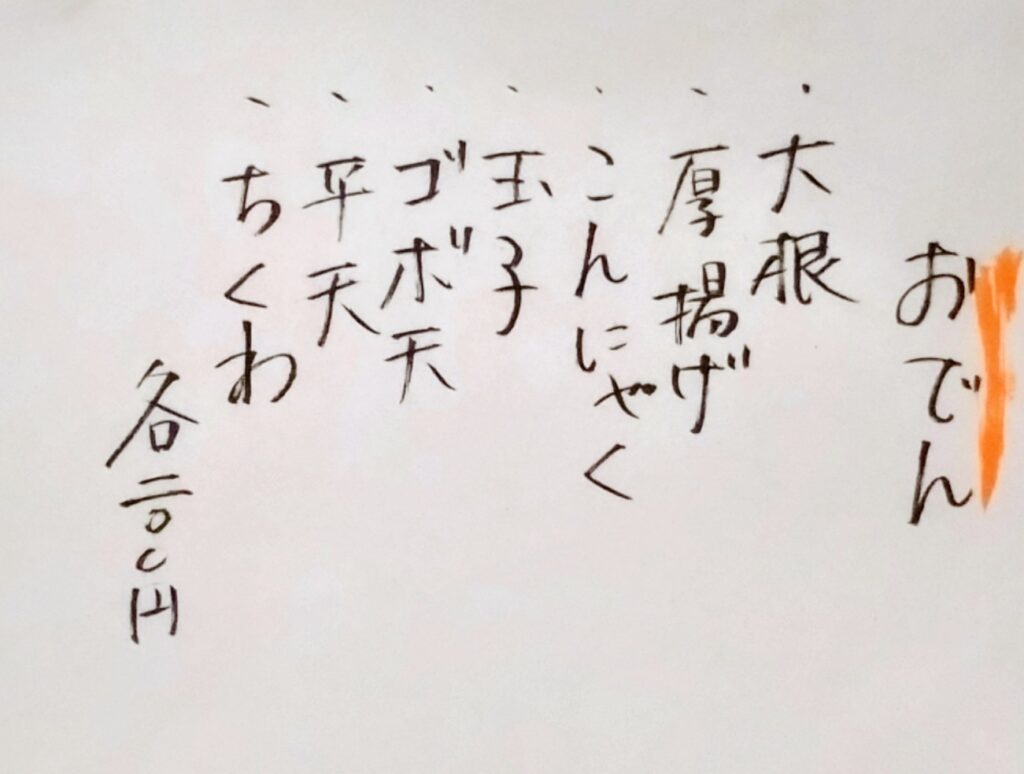 おでん
・大根
・厚揚げ
・こんにゃく
・玉子
・ゴボ天
・平天
・ちくわ
各二〇〇円